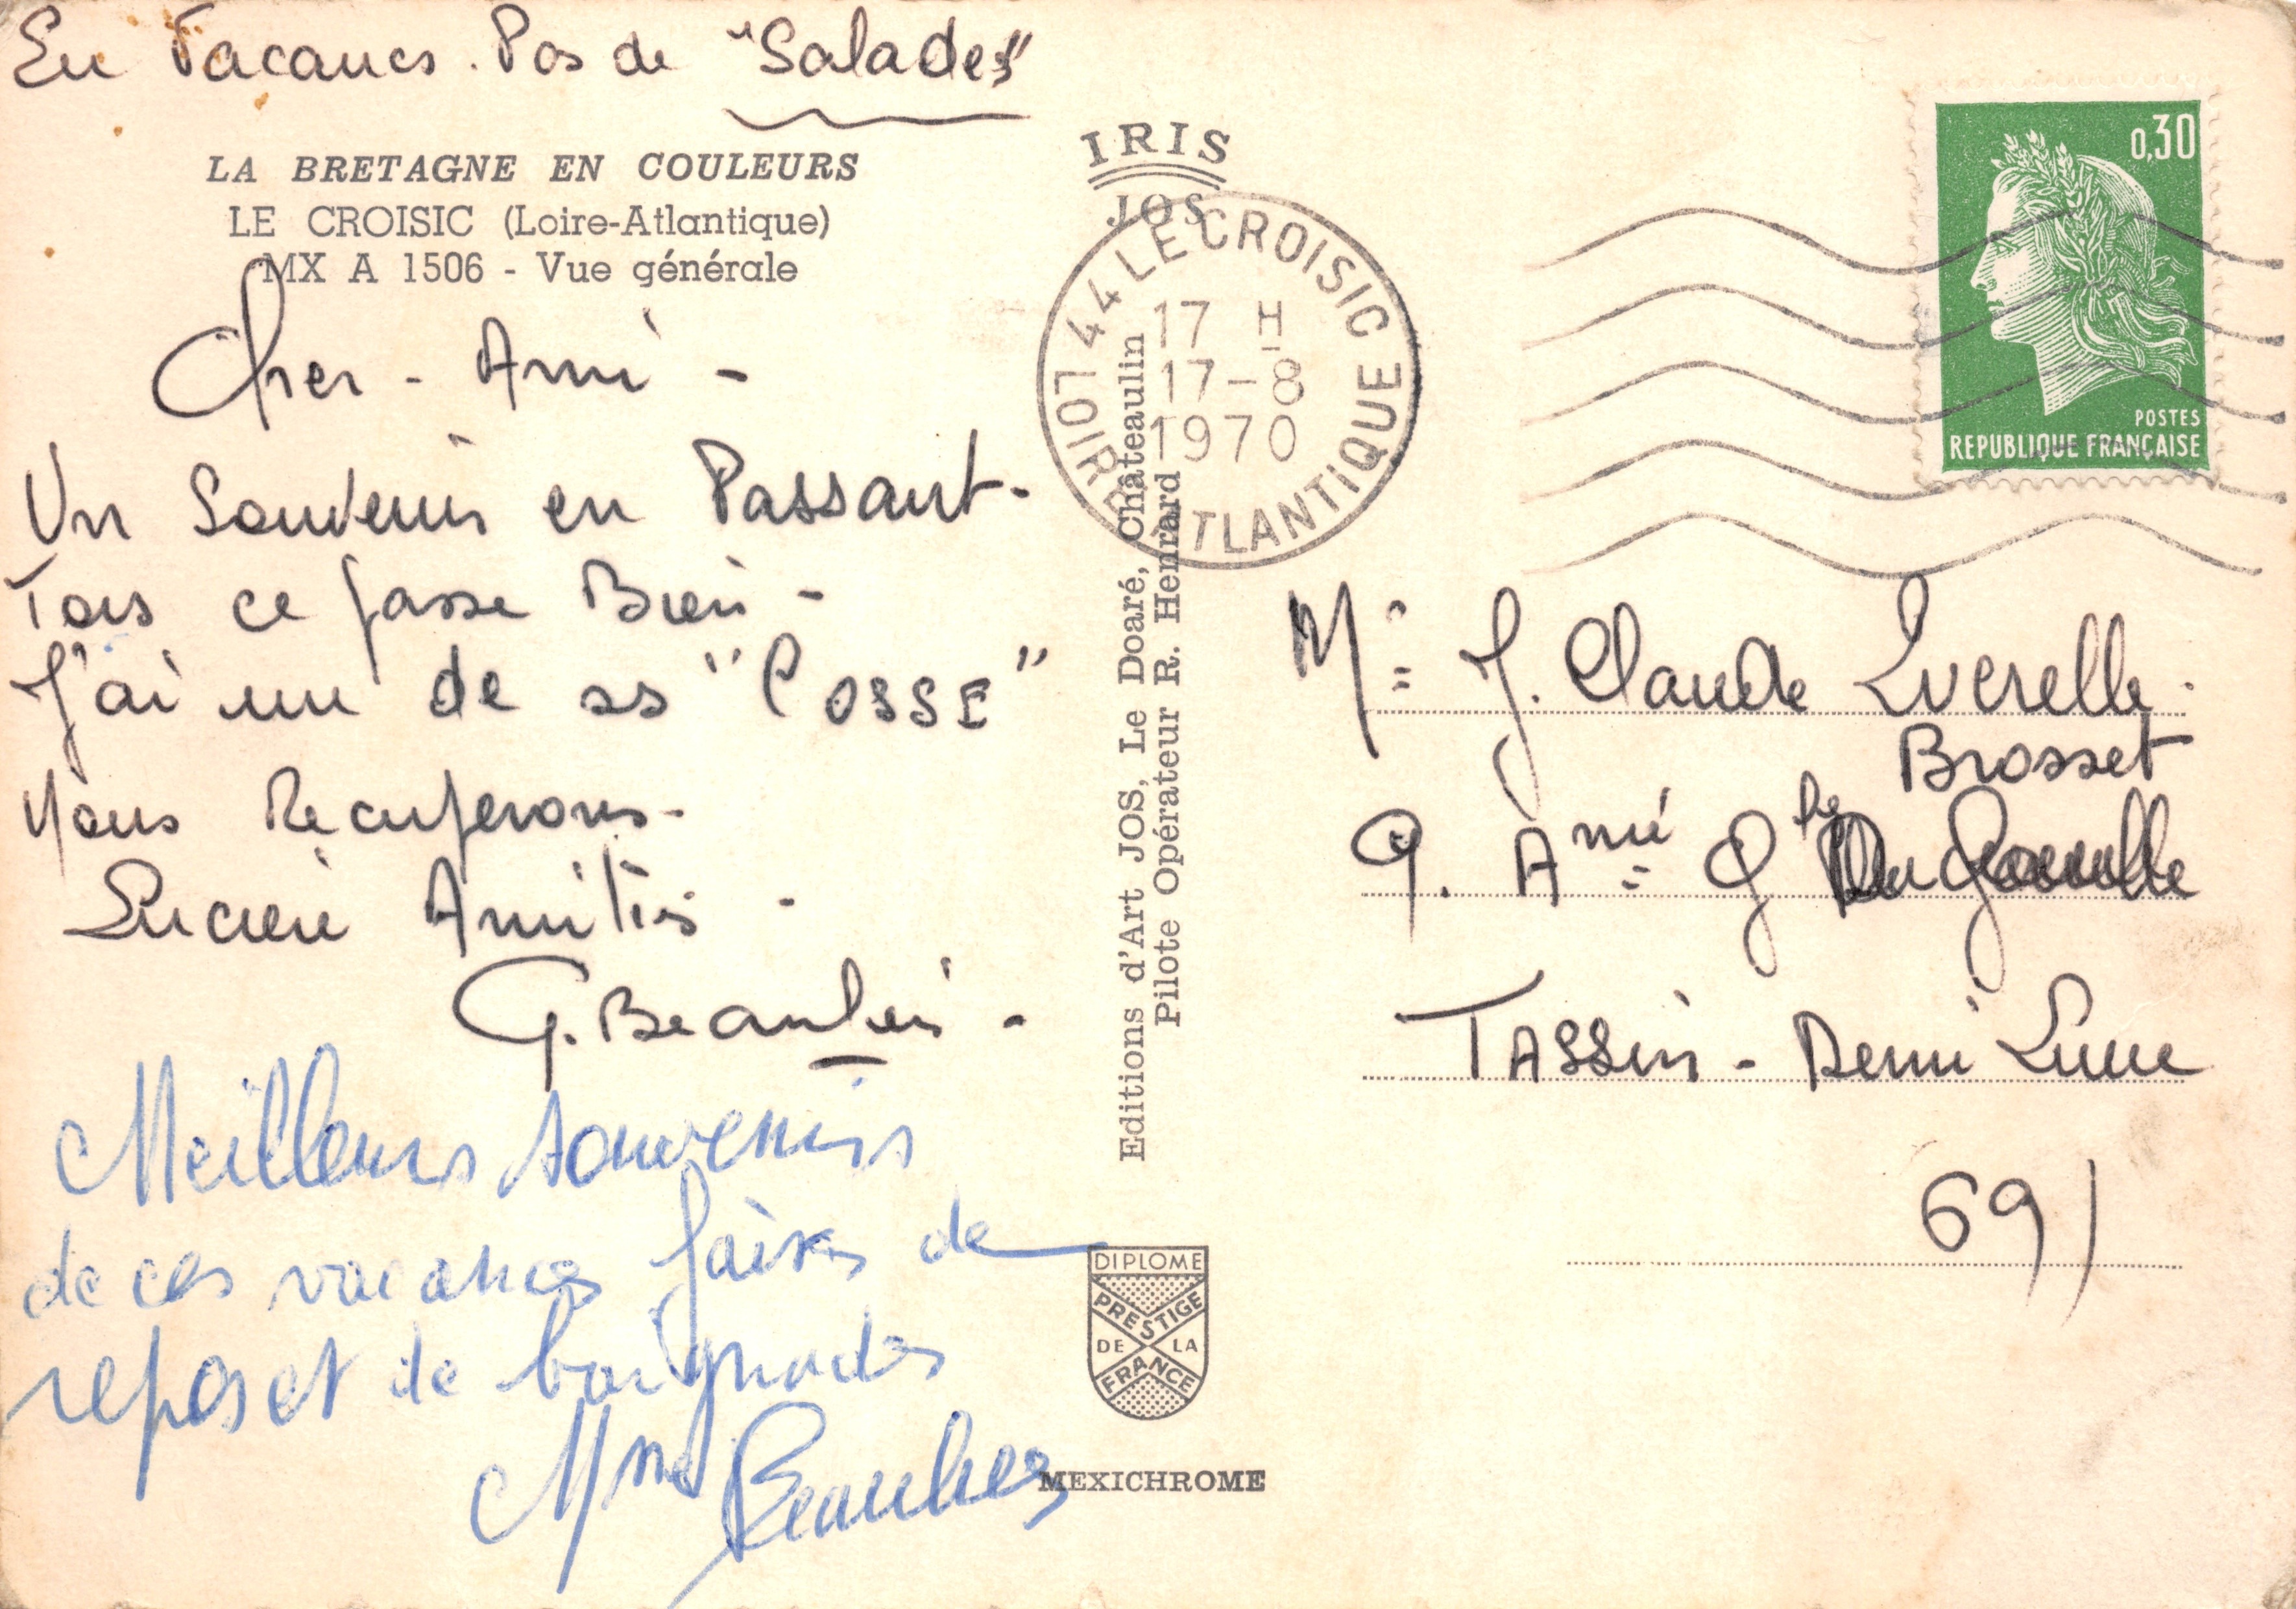 En Vacances. Pas de "Salades"
LA BRETAGNE EN COULEURS
LE CROISIC (Loire-Atlantique)
MX A 1506 - Vue générale
Cher - Ami -
Un Souvenir en Passant -
Tous ce passe Bien -
J'ai une de ss "COSSE"
Nous Recuperons -
Sincere Amitiés -
G. Beaulieu -
Meilleurs souvenirs
de ces vacances faites de
repos et de baignades
Mme Beaulieu
IRIS
JOS
44 LE CROISIC
17 H
17-8
1970
LOIRE ATLANTIQUE
Editions d'Art JOS, Le Doaré, Châteaulin
Pilote Opérateur R. Henrard
DIPLOME
PRESTIGE
DE LA
FRANCE
MEXICHROME
0,30
POSTES
REPUBLIQUE FRANÇAISE
Mr J. Claude
Brosset
9. Ami Gle
TASSin - Demi Lune
69)